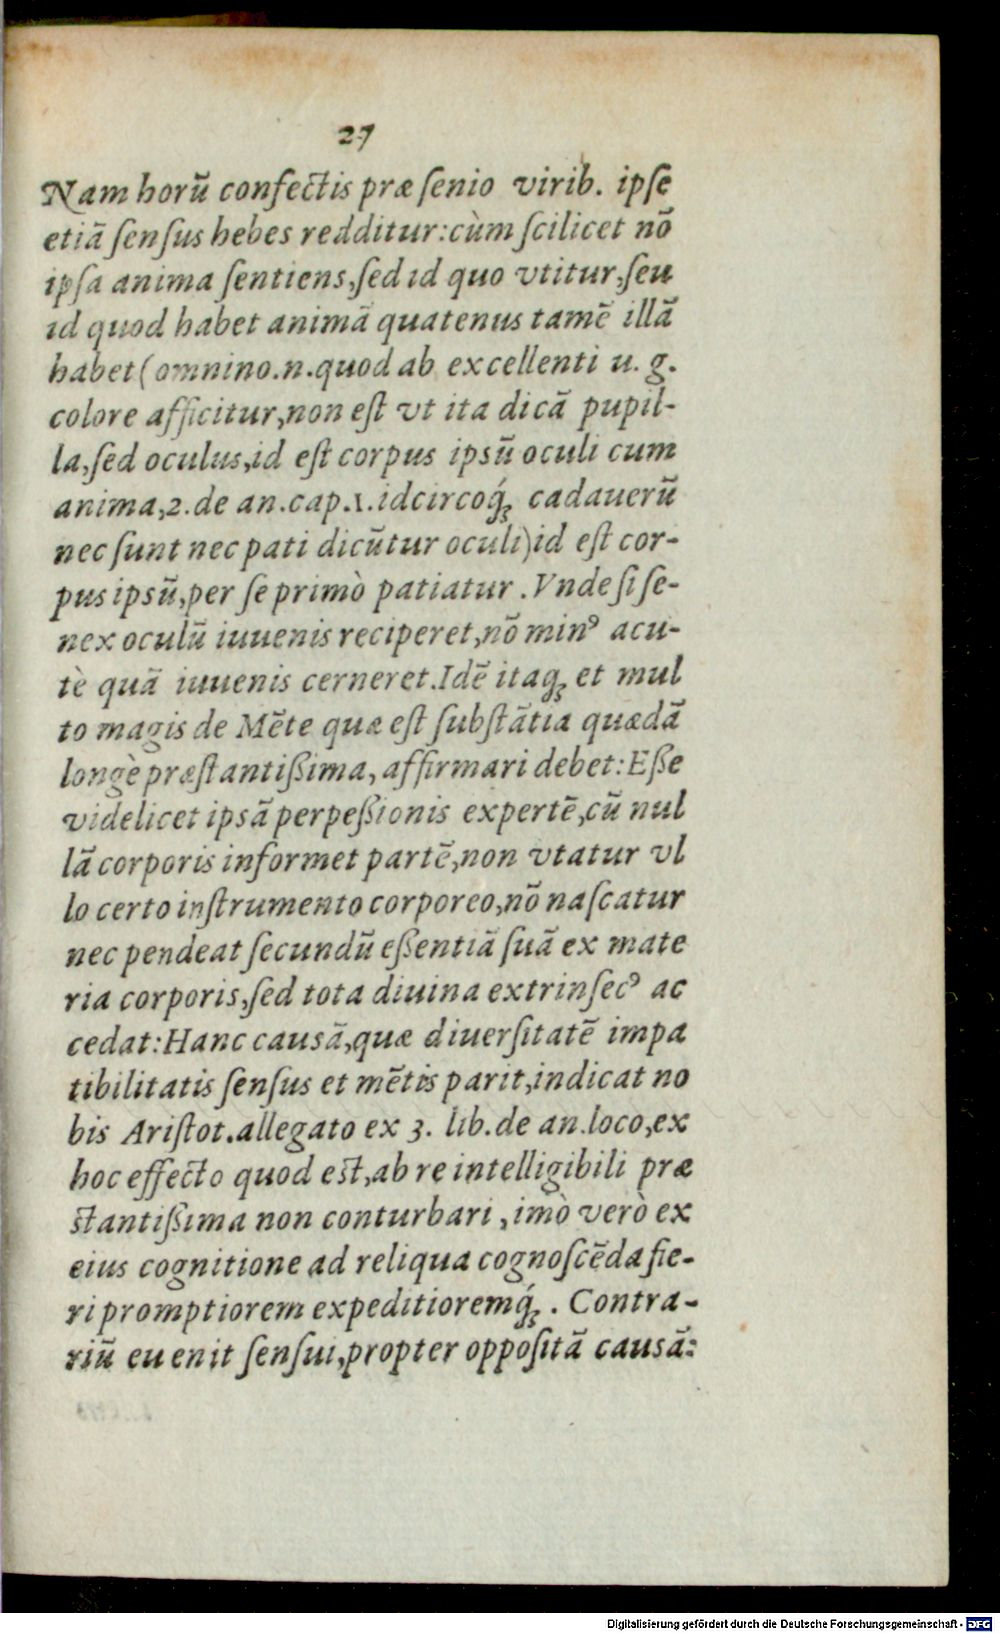 27
Nam horū confectis præ ſenio virib. ipſe
etiā ſenſus hebes redditur: cùm ſcilicet nō
ipſa anima ſentiens, ſed id quo vtitur, ſeu
id quod habet animā quatenus tamē illā
habet (omnino.n.quod ab excellenti u. g.
colore afficitur, non eſt vt ita dicā pupil-
la, ſed oculus, id eſt corpus ipsū oculi cum
anima, 2. de an. cap. 1. idcircoq́ꝫ cadauerū
nec ſunt nec pati dicūtur oculi) id eſt cor-
pus ipsū, per ſe primò patiatur. Vnde ſi ſe-
nex oculū iuuenis reciperet, nō minꝰ acu-
tè quā iuuenis cerneret. Idē itaqꝫ et mul
to magis de Mēte quæ eſt ſubſtātia quædā
longè præſtantißima, affirmari debet: Eße
videlicet ipsā perpeßionis expertē, cū nul
lā corporis informet partē, non vtatur vl
lo certo inſtrumento corporeo, nō naſcatur
nec pendeat ſecundū eßentiā ſuā ex mate
ria corporis, ſed tota diuina extrinſecꝰ ac
cedat: Hanc causā, quæ diuerſitatē impa
tibilitatis ſenſus et mētis parit, indicat no
bis Ariſtot. allegato ex 3. lib. de an. loco, ex
hoc effecto quod eſt, ab re intelligibili præ
ſtantißima non conturbari, imò verò ex
eius cognitione ad reliqua cognoſcēda fie-
ri promptiorem expeditioremq́ꝫ. Contra-
riū euenit ſenſui, propter oppoſitā causā:
Digitalisierung gefördert durch die Deutsche Forschungsgemeinschaft - DFG